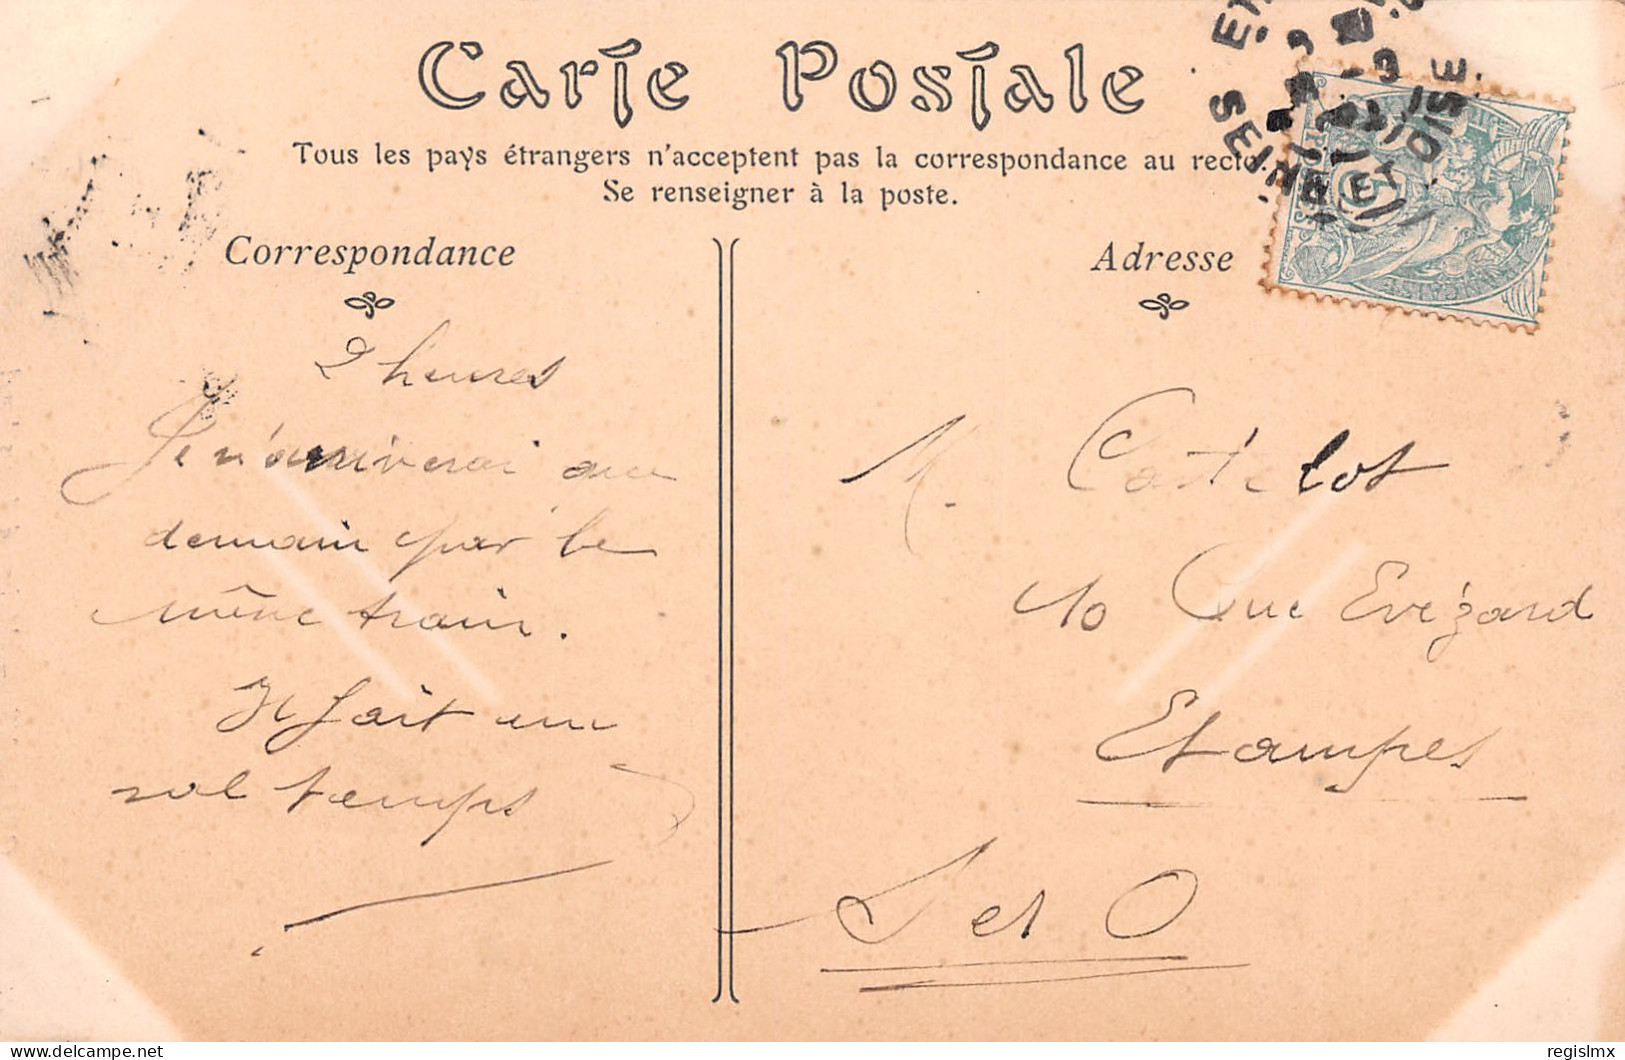 Carte Postale
Tous les pays étrangers n'acceptent pas la correspondance au recto.
Se renseigner à la poste.
Correspondance
2 heures
Je n'arriverai que
demain par le
même train.
Il fait un
sale temps
Adresse
M. Castelot
10 Rue Evézard
Etampes
S et O
SEINE ET OISE
delcampe.net
regislmx